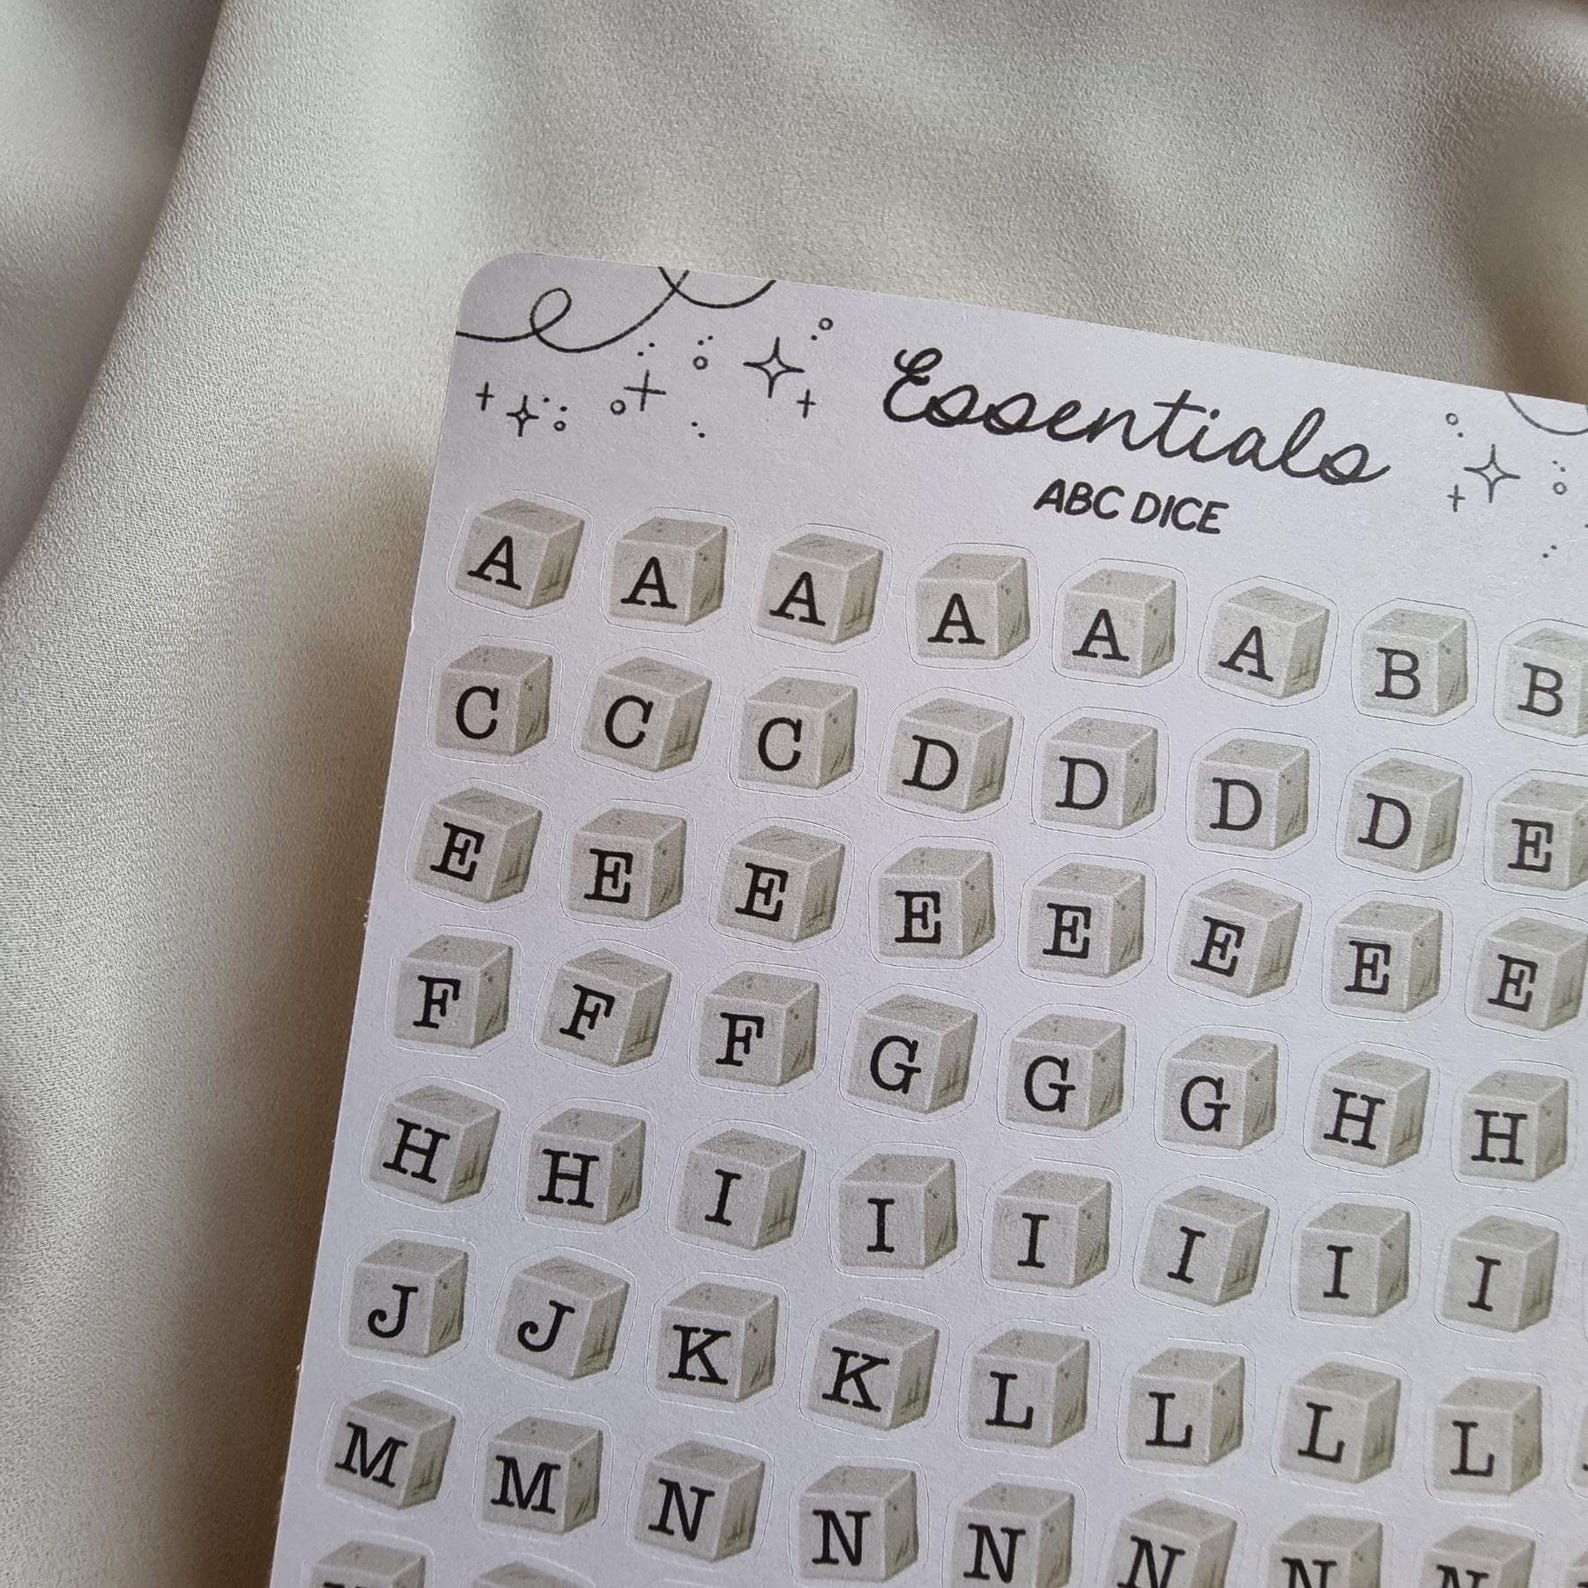 Essentials
ABC DICE
A A A A A A B B
C C C D D D D E
E E E E E E E E
F F F G G G H H
H H I I I I I I
J J K K L L L L
M M N N N N N N